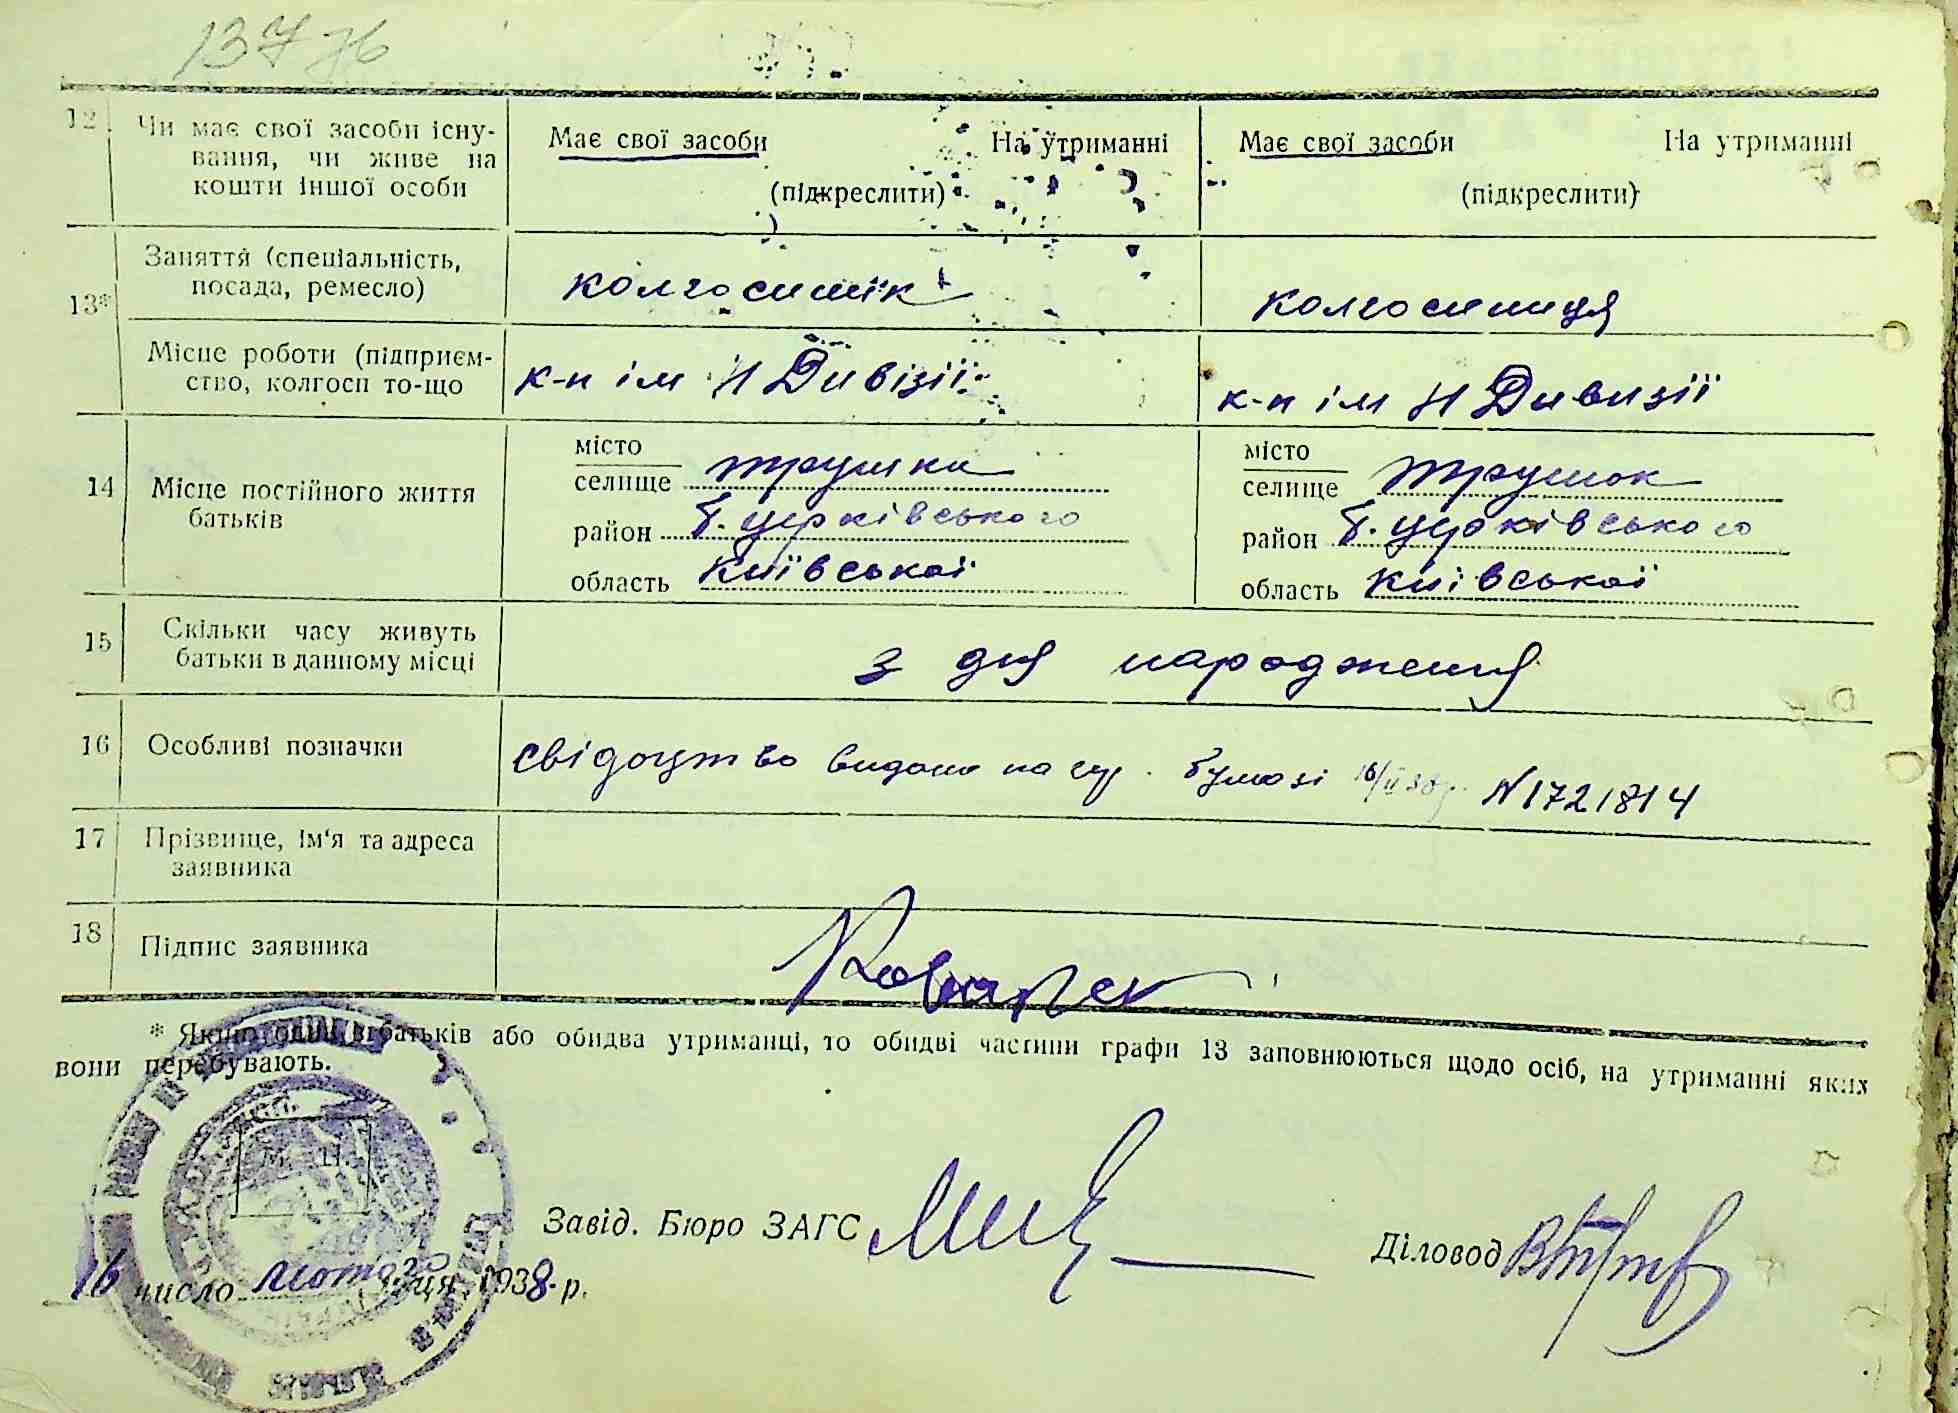 137 зв
12 Чи має свої засоби існу-
вання, чи живе на
кошти іншої особи
Має свої засоби На утриманні
(підкреслити)
Має свої засоби На утриманні
(підкреслити)
13* Заняття (спеціальність,
посада, ремесло)
колгоспник
колгоспниця
Місце роботи (підприєм-
ство, колгосп то-що
к-п ім Н Дивізії
к-п ім Н Дивизії
14 Місце постійного життя
батьків
місто
селище Трушки
район Б. Церківського
область Київської
місто
селище Трушок
район Б. Церківського
область Київської
15 Скільки часу живуть
батьки в данному місці
з дня народження
16 Особливі позначки
Свідоцтво видано на бумазі 16/II 38р. N1721814
17 Прізвище, ім'я та адреса
заявника
18 Підпис заявника
* Якщо один з батьків або обидва утриманці, то обидві частини графи 13 заповнюються щодо осіб, на утриманні яких
вони перебувають.
М. П.
Завід. Бюро ЗАГС
Діловод
16 число лютого м-ця 1938 р.